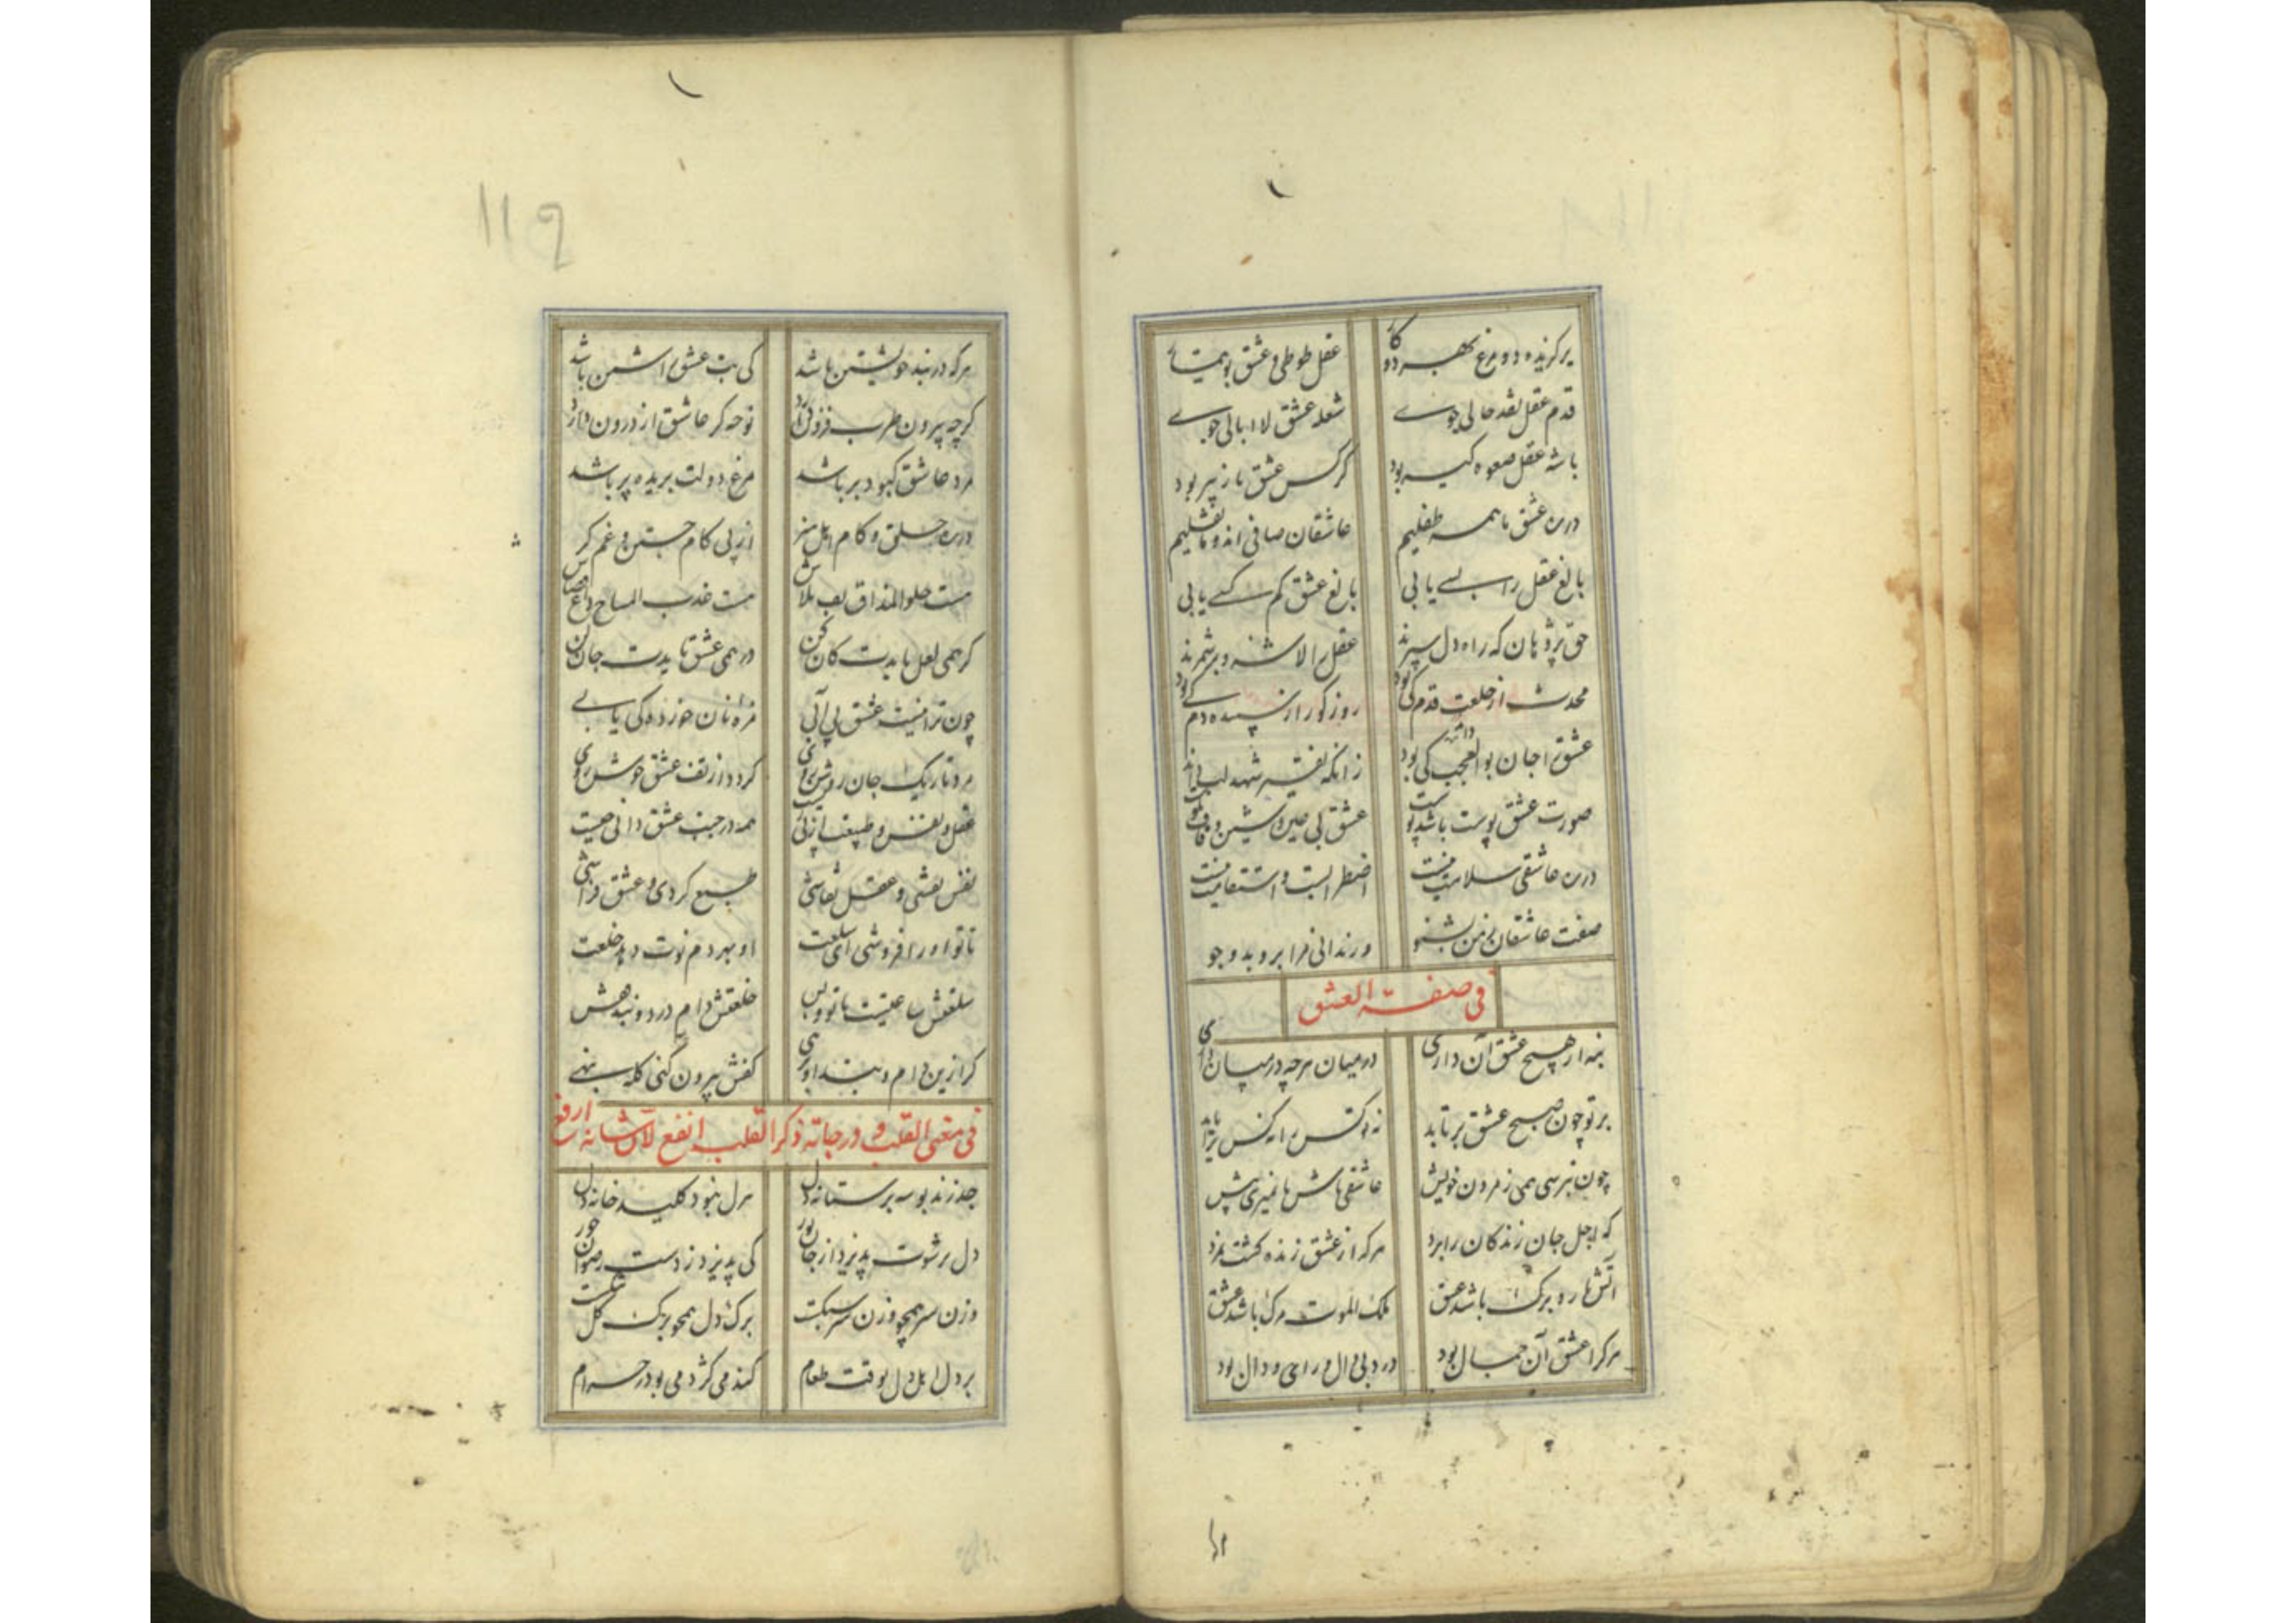 برگزیده دو مرغ بهر دو کا عقل طوطی و عشق بوتیما
قدم عقل نقد حالی جوی شعله عشق لاابالی جوی
باشه عقل صعوه گیر بود کرکس عشق باز پیر بود
در ره عشق ما همه طفلیم عاشقان صافی اند و ما ثفلیم
بالغ عقل را بسی یابی بالغ عشق کم کسی یابی
حق پژوهان که راه دل سپرند عقل را لاشه و بر شمرند
محدث از خلعت قدم کی بود روز کور از سپیده دم کی بود
عشق را جان بوالعجب داند زانکه تفسیر شهد لب داند
صورت عشق پوست باشد پوست عشق بی عین و شین و قاف نکوست
در ره عاشقی سلامت نیست اضطرابست و استقامت نیست
صفت عاشقان ز من بشنو ور ندانی فرا برو بدو جو
فی صفة العشق
بنه ار هیچ عشق آن داری در میان هرچه در میان داری
بر تو چون صبح عشق برتابد نه تو کس را نه کس ترا یابد
چون نترسی همی ز مردن خویش عاشقی باش تا نمیری پیش
که اجل جان زندگان را برد هر که از عشق زنده گشت نمرد
آتش بار و برگ باشد عشق ملک الموت مرگ باشد عشق
هر کرا عشق آن جمال بود درد بی دال و رای و دال بود
هر که در بند خویشتن باشد کی بت عشق را شمن باشد
گرچه بیرون طرب فزون دارد نوحه گر عاشق از درون دارد
مرد عاشق کبود بر باشد مرغ دولت بریده پر باشد
در ره خلق و کام اهل هنر از پی کام جستن و غم کر
هست حلو المذاق لعب بلاش هست عذب المساح داغ قصاص
گر همی لعل بایدت کان کن در همی عشق بایدت جان کن
چون ترا نیست عشق بی آبی مزه نان خورده کی یابی
مرد تاریک جان روشن رای گردد از تف عشق خوش روی
عقل و نفس و طبیعت از پی نیست همه در جنب عشق دانی چیست
نفس نقشی و عقل نقاشی طبع گردی و عشق فراشی
تا تو او را فروشی ای سلعت او بهر دم نوت دهد خلعت
سلعتش ساعتیست با تو و بس خلعتش دام درد و بندهش
گر ازین دام و بند او برهی کفش بیرون کنی کله بنهی
فی معنی القلب و درجاته ذکر القلب انفع لان شانه ارفع
جد زند بوسه بر ستانه دل هزل نبود کلید خانه دل
دل رشوت پذیرد از جان نور کی پذیرد ز دست رضوان حور
وزن سر همچو وزن سر سبکست برگ دل همچو برگ گل تنکست
بر دل اهل دل بوقت طعام گندمی کژدمی بود ز حرام